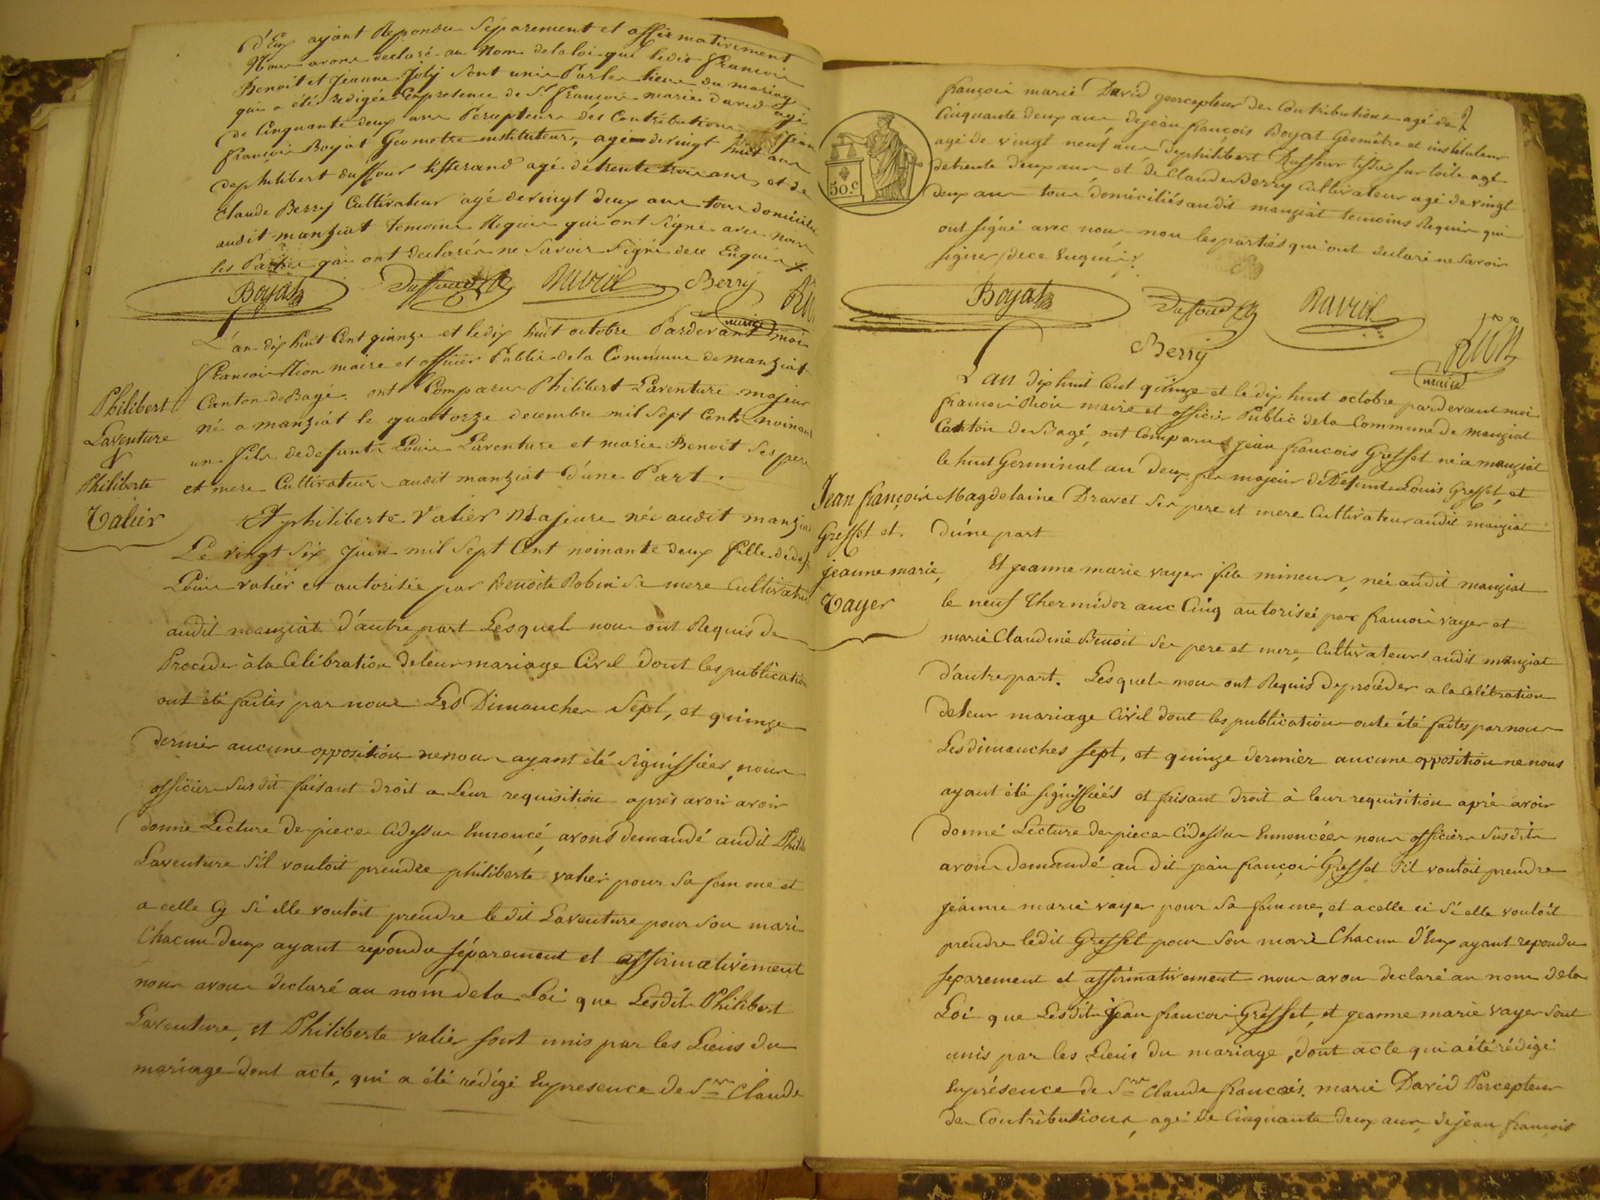 d'Eux ayant Repondu séparement et affirmativement
Nous avons declaré au Nom de la loi que ledit françois
Benoit et Jeanne Joly sont unis Par les liens du mariage
qui a été redigée Enpresence de Sr françois marie david agé
de Cinquante deux ans Percepteur des Contributions, jean
françois Boyat Geometre instituteur, agé de vingt huit ans
de philibert duffour tisserand agé de trente trois ans, et de
Claude Berry Cultivateur agé de vingt deux ans tous domiciliés
audit manziat temoins Requis qui ont signé avec nous
les Parties qui ont declarés ne savoir signé de ce Enquis
Boyat Duffour David Berry Rion
maire
L'an dix huit Cent quinze et le dix huit octobre Pardevant moi
françois Rion maire et officier Public de la Commune de manziat
Canton de Bagé ont Comparu Philibert Laventure majeur
né a manziat le quatorze decembre mil sept Cent noinante
un fils de defunts Louis Laventure et marie Benoit ses pere
et mere Cultivateurs audit manziat d'une Part.
Philibert
Laventure
&
Philiberte
Valier
Et philiberte Valier Majeure née audit manziat
Le vingt six juin mil sept Cent noinante deux fille de def
Louis valier et autorisée par Benoite Robin sa mere Cultivatrice
audit manziat d'autre part Lesquels nous ont Requis de
Proceder à la Celébration de leur mariage Civil dont les publications
ont été faites par nous Les Dimanches Sept, et quinze
dernier aucune opposition ne nous ayant été signiffiées, nous
officier susdit faisant droit a Leur requisition après avoir avoir
donné Lecture de pieces Cidessus Ennoncé, avons demandé audit Phili
Laventure s'il vouloit prendre philiberte valier pour sa femme et
a celle Cy si elle vouloit prendre le dit Laventure pour son mari
Chacun deux ayant repondu séparement et affirmativement
nous avons declaré au nom de la Loi que Lesdits Philibert
Laventure, et Philiberte valier sont unis par les Liens du
mariage dont acte, qui a été rédigé Enpresence de Sr Claude
50.c
françois marie David percepteur des Contributions agé de
Cinquante deux ans, de jean françois Boyat Geomètre et instituteur
agé de vingt neuf ans de philibert Duffour tissier sur toile agé
de trente deux ans et de Claude Berry Cultivateur agé de vingt
deux ans tous domiciliés audit manziat temoins Requis qui
ont signé avec nous non les parties qui ont declaré ne savoir
signer, de ce Enquis.
Boyat Duffour David
Berry Rion
maire
L'an dix huit Cent quinze et le dix huit octobre pardevant moi
francois Rion maire et officier Public de la Commune de manziat
Canton de Bagé, ont Comparus jean francois Greffet né a manziat
le huit Germinal an deux fils majeur de Defunts Louis Greffet, et
Magdelaine Dravet ses pere et mere Cultivateur audit manziat
d'une part
Jean françois
Greffet et
jeanne marie
Vayer
Et jeanne marie vayer fille mineure, née audit manziat
le neuf Thermidor anc Cinq autorisée par francois vayer et
marie Claudine Benoit ses pere et mere, Cultivateurs audit manziat
d'autre part. Lesquels nous ont Requis de procéder a la Celébration
de leur mariage Civil dont les publications onte été faites par nous
Les dimanches sept, et quinze dernier aucune opposition ne nous
ayant été signiffiées et faisant droit à leur requisition apré avoir
donné Lecture de pieces Cidessus Ennoncées nous officier susdit
avons demandé au dit jean françois Greffet s'il vouloit prendre
jeanne marie vayer pour sa femme, et a celle ci si elle vouloit
prendre ledit Greffet pour son mari Chacun d'Eux ayant repondu
séparement et affirmativement nous avons declaré au nom de la
Loi que Lesdits jean francois Greffet, et jeanne marie vayer sont
unis par les Liens du mariage, dont acte qui a été rédigé
Enprésence de Sr Claude francois marie David Percepteur
des Contributions, agé de Cinquante deux ans, de jean francois